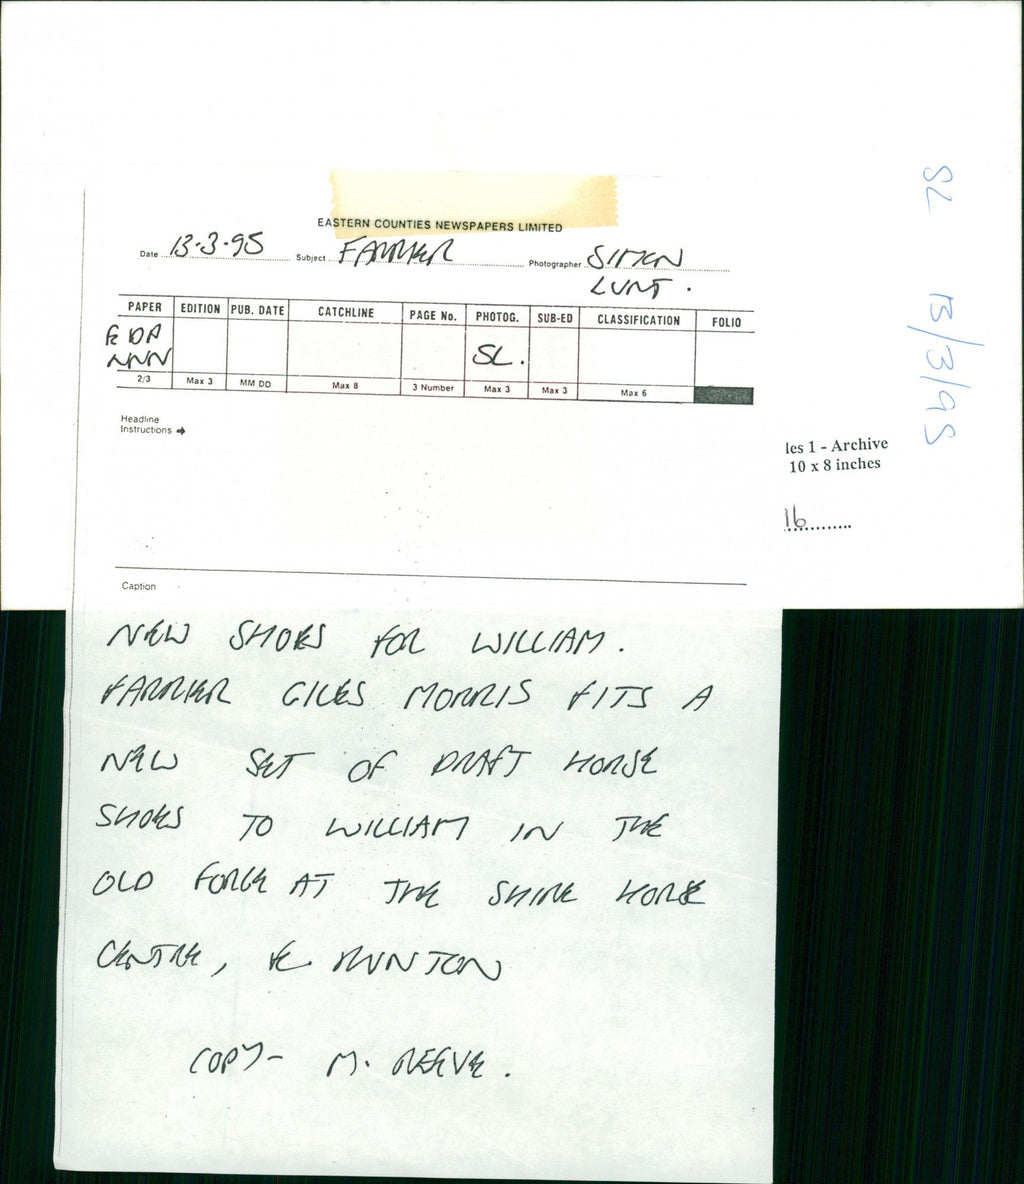 EASTERN COUNTIES NEWSPAPERS LIMITED
Date 13-3-95 Subject FARRIER Photographer SIMON
LUNT.
PAPER EDITION PUB. DATE CATCHLINE PAGE No. PHOTOG. SUB-ED CLASSIFICATION FOLIO
EDP
NNN SL.
2/3 Max 3 MM DD Max 8 3 Number Max 3 Max 3 Max 6
Headline
Instructions →
Caption
NEW SHOES FOR WILLIAM.
FARRIER GILES MORRIS FITS A
NEW SET OF DRAFT HORSE
SHOES TO WILLIAM IN THE
OLD FORGE AT THE SHIRE HORSE
CENTRE, E. RUNTON
COPY- M. REEVE.
les 1 - Archive
10 x 8 inches
16...........
SL 13/3/95